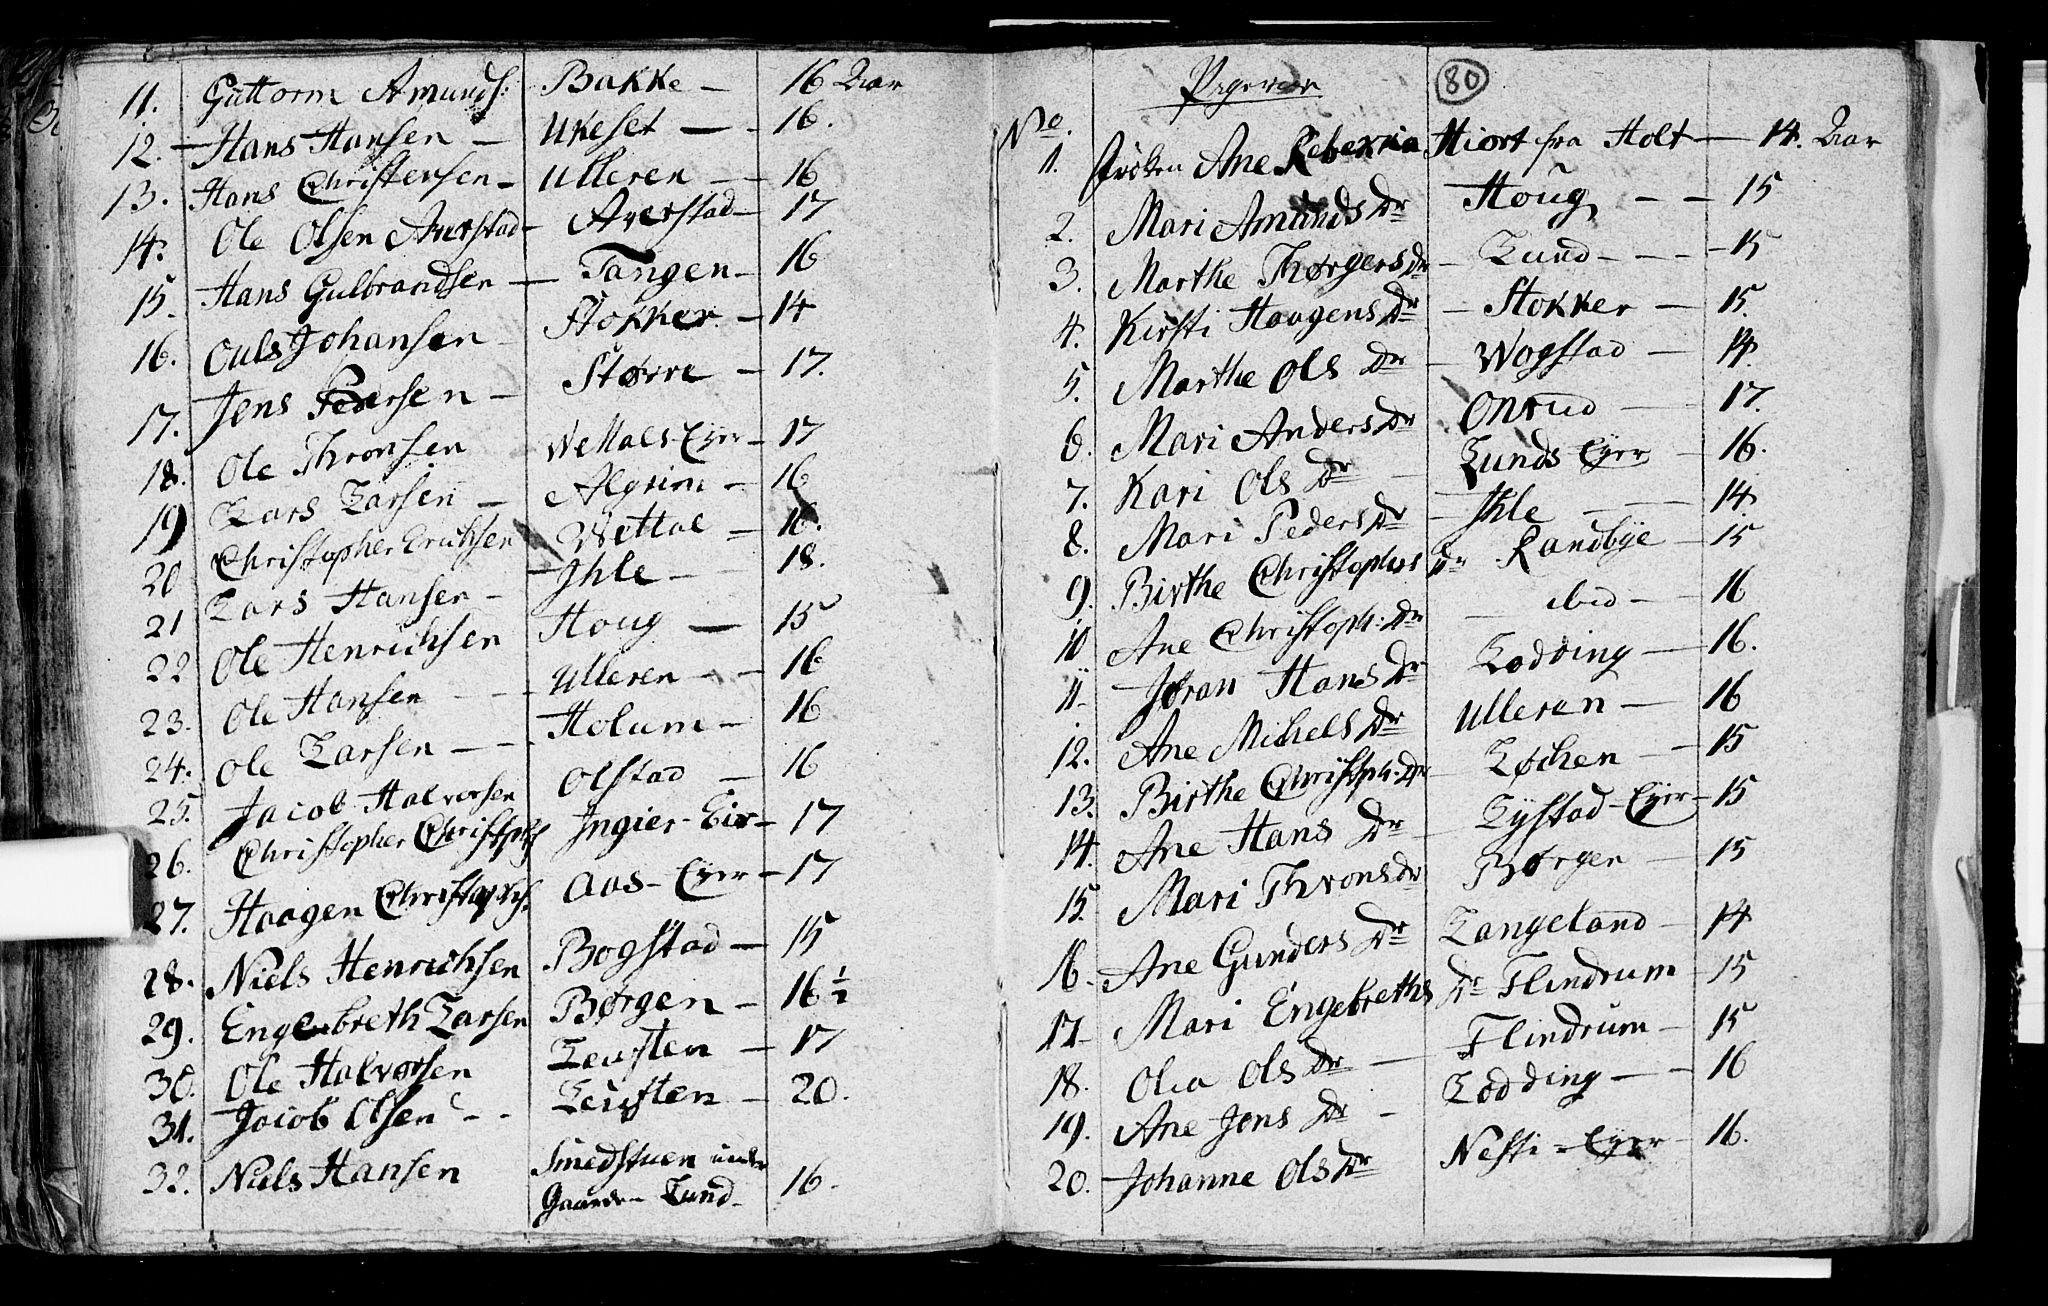 11. Guttorm Amunds: Bakke — 16 Aar
12. Hans Hansen — Ukeset — 16.
13. Hans Christensen — Ulleren — 16
14. Ole Olsen Averstad — Averstad — 17
15. Hans Gulbrandsen — Tangen — 16
16. Ouls Johansen Stokker — 14
17. Jens Pedersen — Større — 17.
18. Ole Thronsen Wettals Eyer — 17
19 Lars Larsen — Algrim — 16
20 Christopher Erichsen Wettal — 16.
21 Lars Hansen — Ihle — 18.
22 Ole Henrichsen Houg — 15
23. Ole Hansen — Ulleren — 16
24. Ole Larsen — Holum — 16
25. Jacob Halvorsen Olstad — 16
26. Christopher Christophs Ingier-Eir — 17
27. Haagen Christophs: Aas-Eyer — 17
28. Niels Henrichsen Bogstad — 15
29. Engebreth Larsen Børgen — 16 1/2
30. Ole Halvorsen Leusten — 17
31. Jacob Olsen — Leusten — 20.
32. Niels Hansen Smedstuen under
Gaarden Lund — 16.
80
Pigerne
No.
1. Frøken Ane Rebekka Hiort fra Holt — 14. Aar
2. Mari Amunds Dr Houg — 15
3. Marthe Thørgers Dr — Lund — 15
4. Kirsti Haagens Dr — Stokker — 15.
5. Marthe Ols Dr — Wogstad — 14.
6. Mari Anders Dr Onrud — 17.
7. Kari Ols Dr — Lunds Eyer — 16.
8. Mari Peders Dr — Ihle — 14
9. Birthe Christophers Dr Randbye — 15
10 Ane Christoph: Dr — ibid — 16
11 Jøran Hans Dr Lodding — 16.
12. Ane Michels Dr Ulleren — 16
13. Birthe Christoph: Dr Løchen — 15
14. Ane Hans Dr — Lystad-Eyer — 15
15. Mari Throns Dr Børgen — 15
16. Ane Gunders Dr Langeland — 14
17 Mari Engebreths Dr Flindrum — 15
18. Olia Ols Dr — Flindrum — 15
19. Ane Jens Dr — Lodding — 16
20. Johanne Ols Dr Nesti-Eyer — 16.